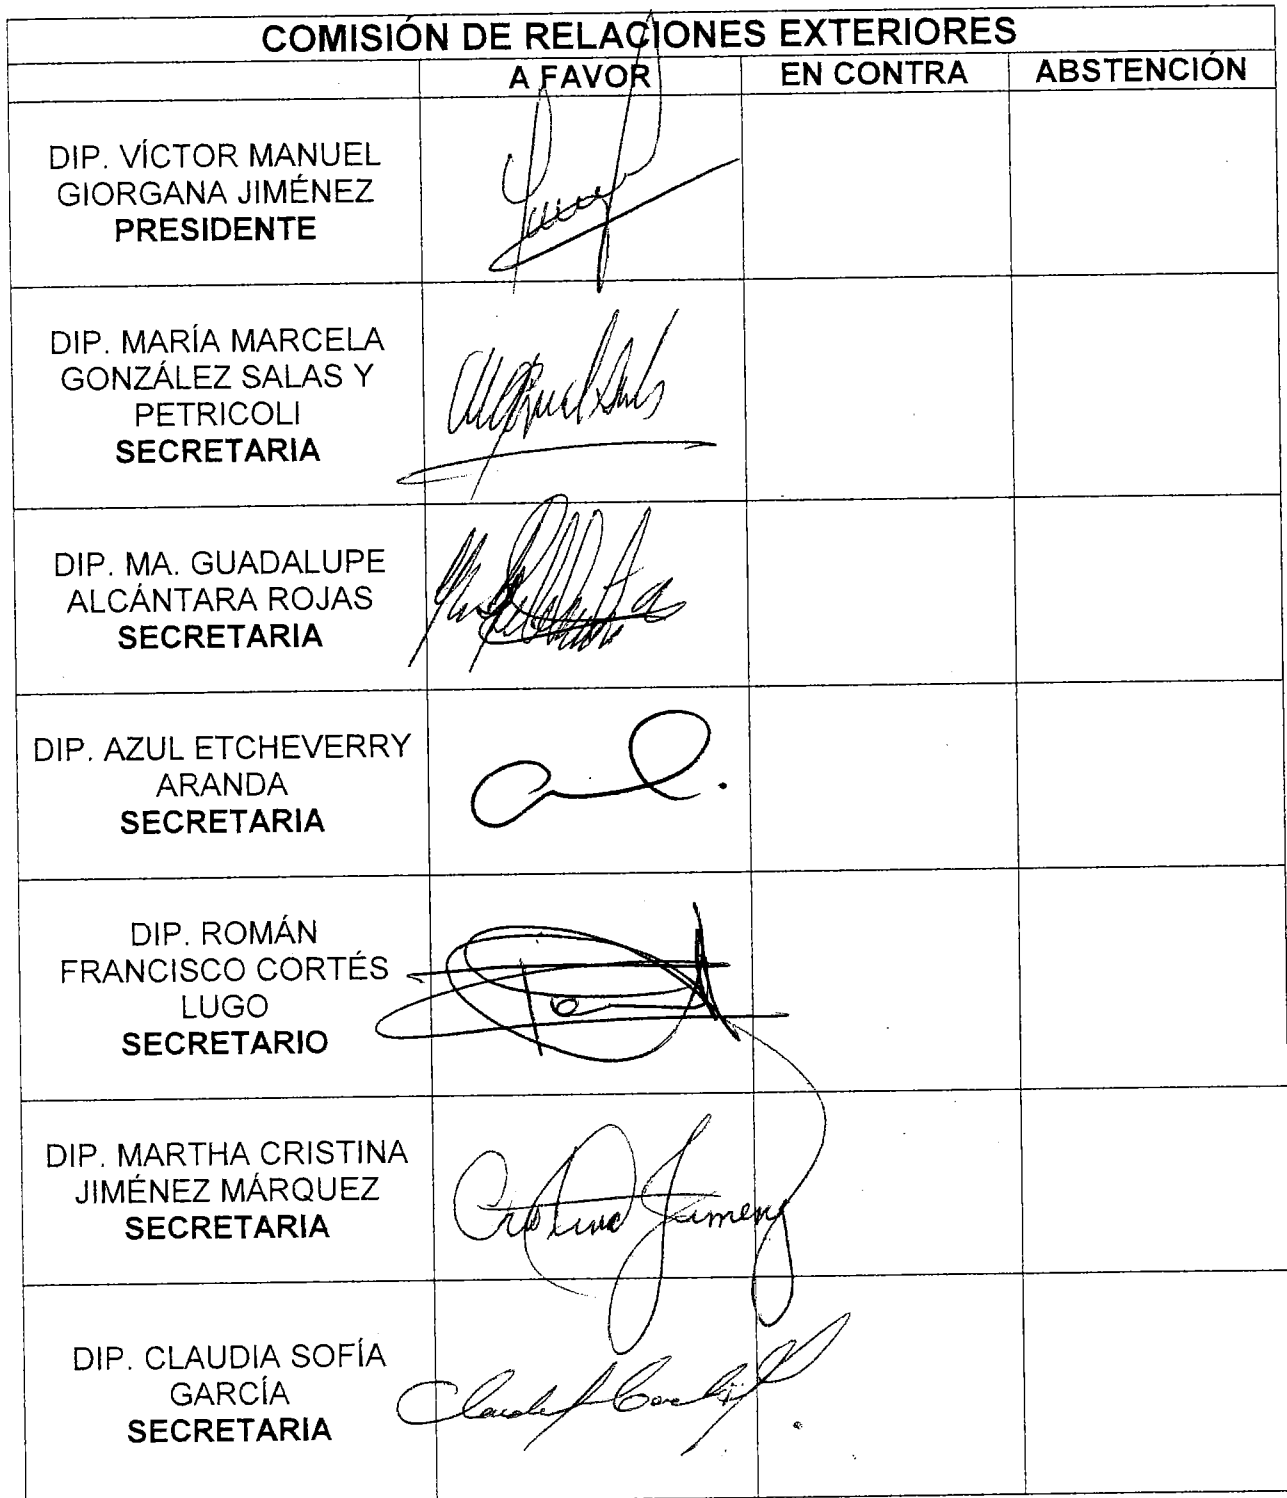 COMISIÓN DE RELACIONES EXTERIORES
A FAVOR EN CONTRA ABSTENCIÓN
DIP. VÍCTOR MANUEL
GIORGANA JIMÉNEZ
PRESIDENTE
DIP. MARÍA MARCELA
GONZÁLEZ SALAS Y
PETRICOLI
SECRETARIA
DIP. MA. GUADALUPE
ALCÁNTARA ROJAS
SECRETARIA
DIP. AZUL ETCHEVERRY
ARANDA
SECRETARIA
DIP. ROMÁN
FRANCISCO CORTÉS
LUGO
SECRETARIO
DIP. MARTHA CRISTINA
JIMÉNEZ MÁRQUEZ
SECRETARIA
Cristina Jimenez
DIP. CLAUDIA SOFÍA
GARCÍA
SECRETARIA